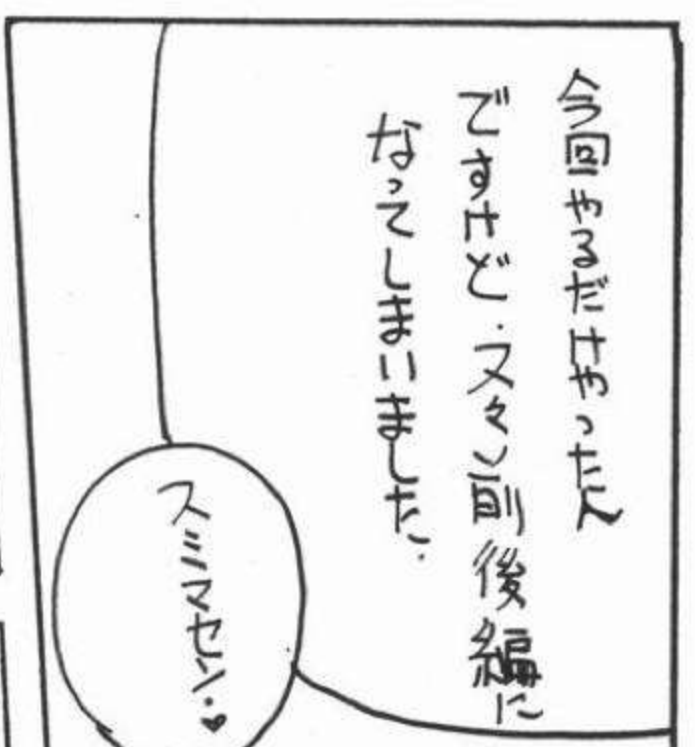 今回やるだけやったん
ですけど.又々前後編に
なってしまいました.
スミマセン.♥